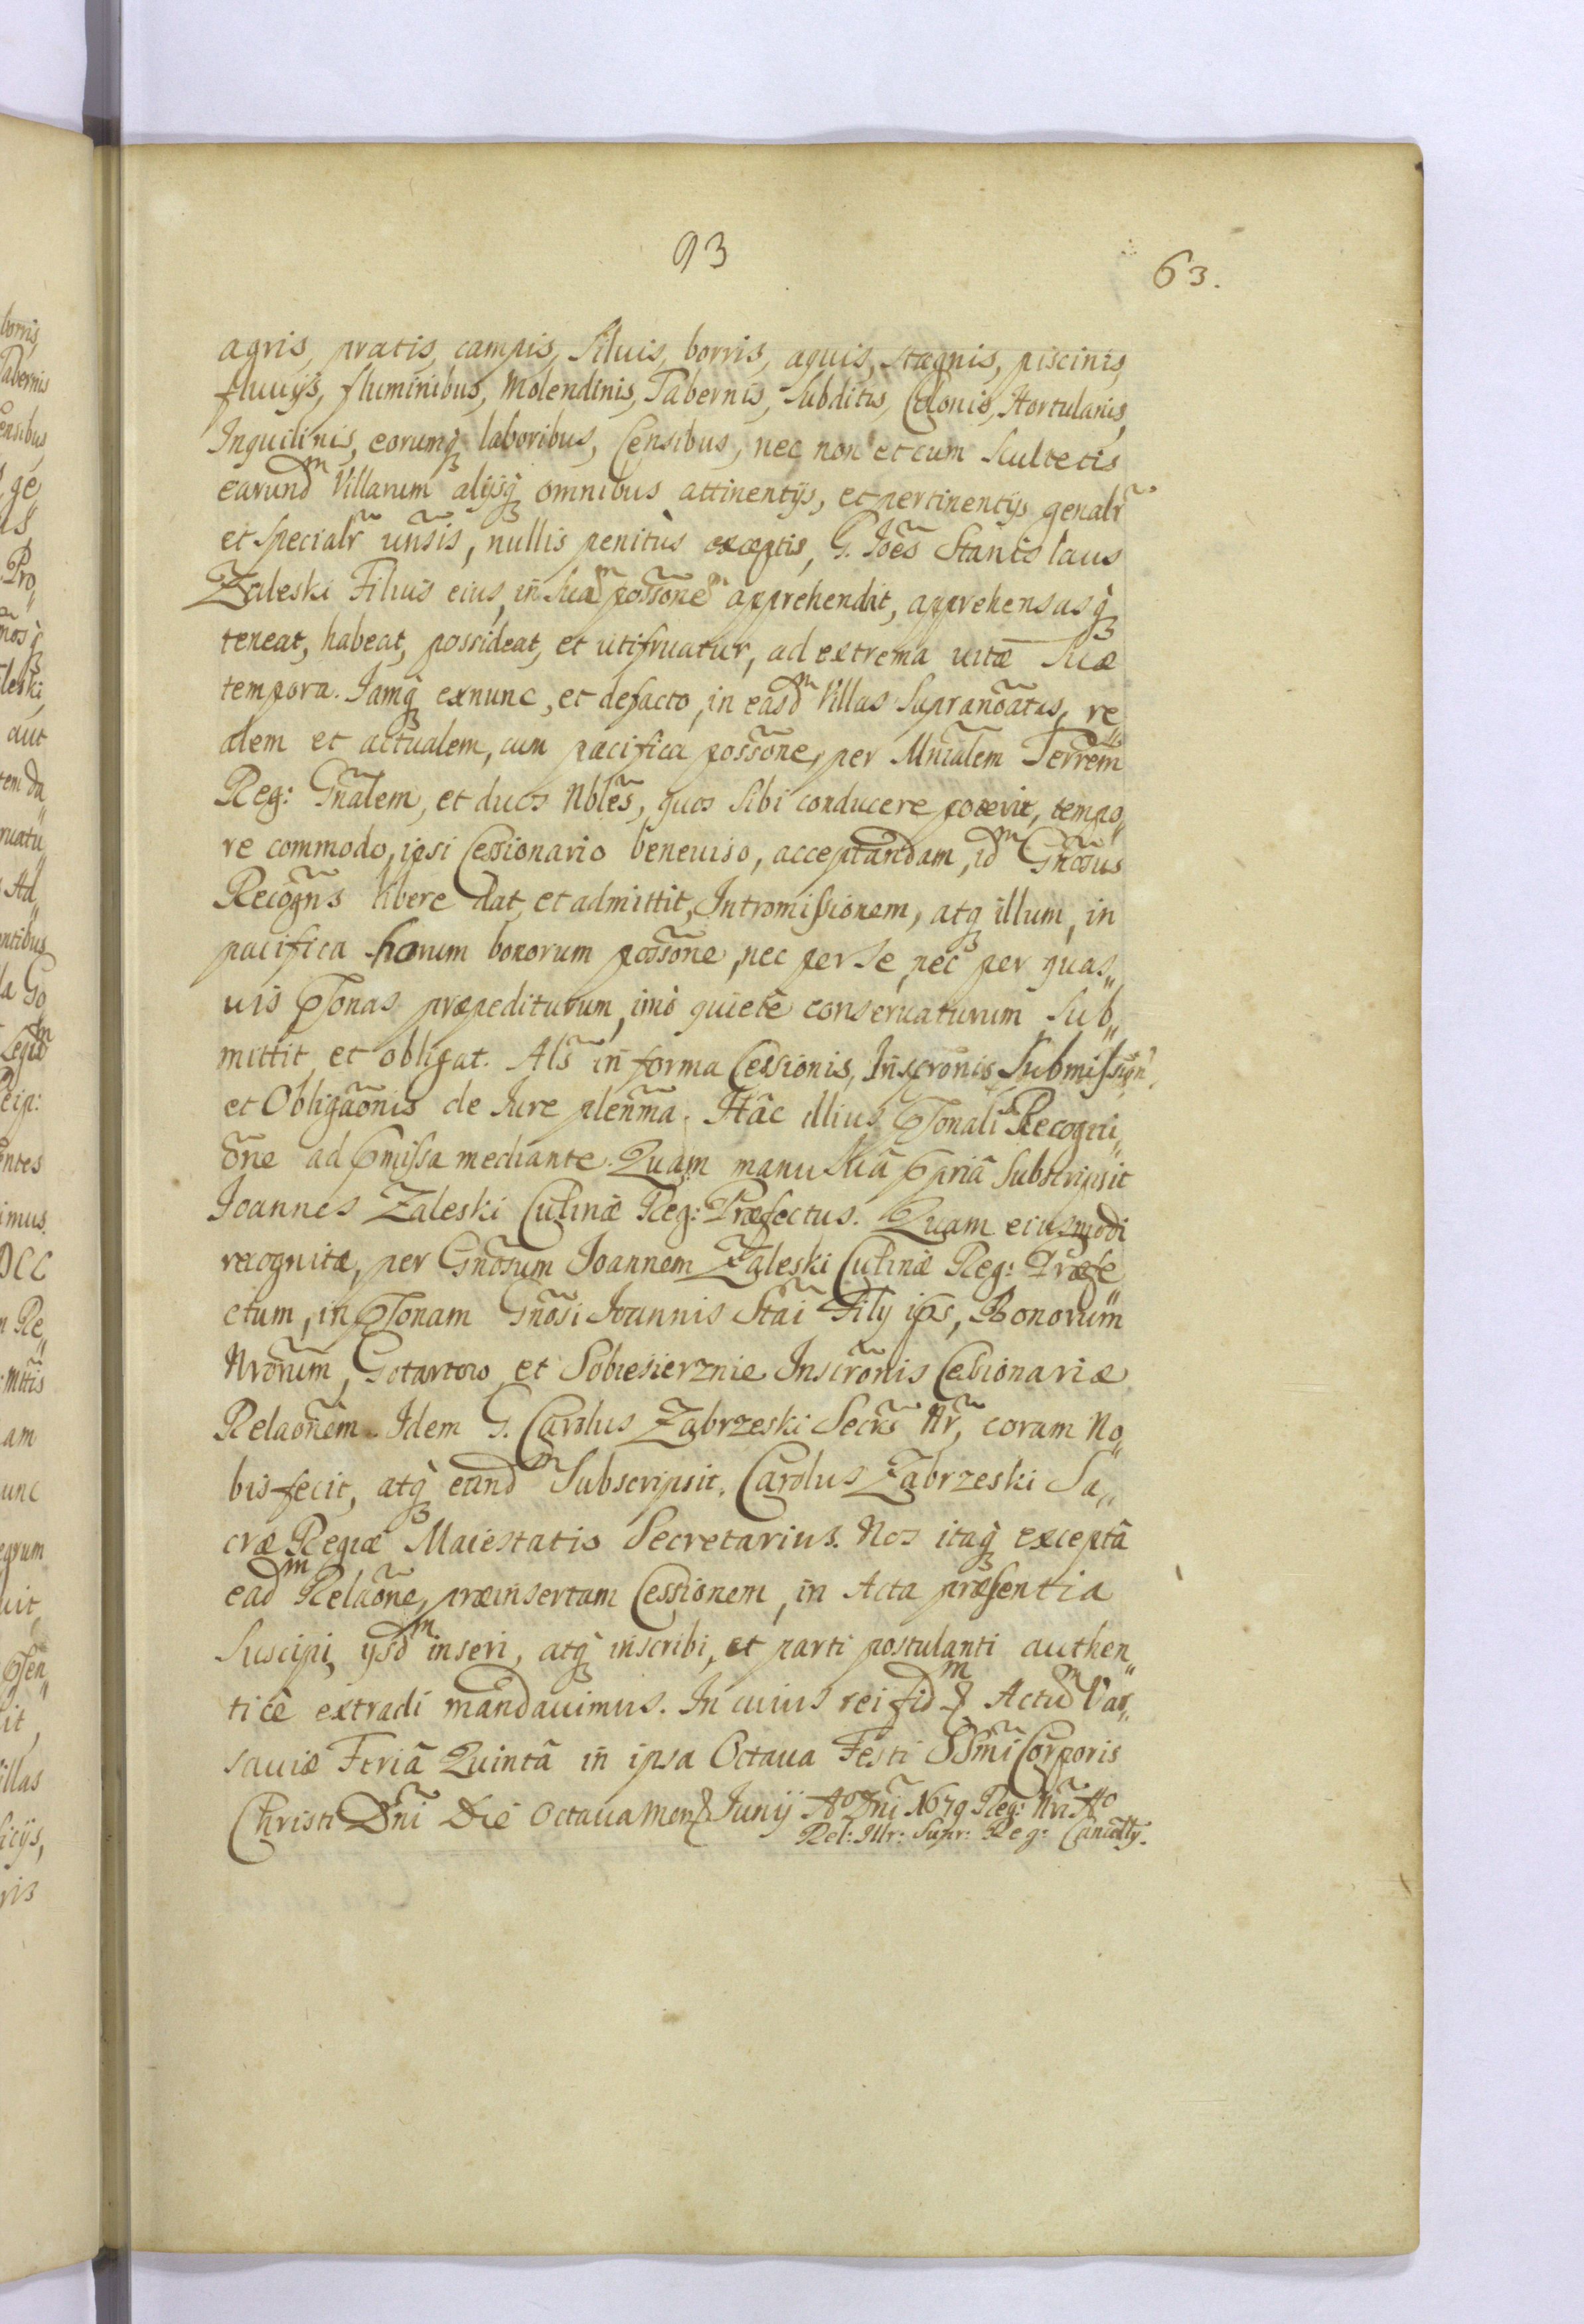 93
63.
agris, pratis, campis, Siluis, borris, aquis, stagnis, piscinis,
fluuijs, fluminibus, Molendinis, Tabernis, Subditis, Colonis, Hortulanis,
Inquilinis, eorumq̃ laboribus, Censibus, nec non et cum Scultetis
earundm Villarum alijsq̃ omnibus attinentijs, et pertinentijs genalr̃
et Specialr̃ uñsis, nullis penitùs exceptis, G. Joẽs Stanislaus
Zaleski Filius eius, in Suam possõnem apprehendat, apprehensasq̃
teneat, habeat, possideat, et utifruatur, ad extrema uitæ Suæ
tempora. Iamq̃ exnunc, et defacto, in easdm Villas Supranõatas, re
alem et actualem, cum pacifica possõne, per Mnialẽm Terrẽm
Reg: Gñalem, et duos Nblẽs, quos Sibi conducere poterit, tempo„
re commodo, ipsi Cessionario beneuiso, acceptandam, idm Gñosus
Recogñs libere dat, et admittit, Intromissionem, atq̃ illum, in
pacifica horum bonorum possõne, nec per Se, nec per quas„
uis Psonas præpediturum, imò quietè conseruaturum Sub„
mittit et obligat. Als̃ in forma Cessionis, Inscrõnis Submission:
et Obligaõnis de Iure pleñma. Hâc illius Psonali Recogni„
õne ad pmissa mediante. Quam manu Suâ ppriâ Subscripsit
Joannes Zaleski Culinæ Reg: Præfectus. Quam eiusmodi
recognitæ, per Gñosum Joannem Zaleski Culinæ Reg: Præfe„
ctum, in Psonam Gñosi Joannis Stãi Filij ips, Bonorum
Nrõrum, Gotartowo et Sobiesierznie Inscrõnis Cessionariæ
Relaõnem. Idem G. Carolus Zabrzeski Secrũs Nr̃, coram No„
bis fecit, atq̃ eandm Subscripsit. Carolus Zabrzeski Sa„
cræ Regiæ Maiestatis Secretarius. Nos itaq̃ exceptâ
eadm Relaõne, præinsertam Cessionem, in Acta præsentia
Suscipi, ijsdm inseri, atq̃ inscribi, et parti postulanti authen„
ticè extradi mandauimus. In cuius rei fidm & Actum Var„
sauiæ Feriâ Quintâ in ipsa Octaua Festi SSmi Corporis
Christi Dñi Die Octaua Mens Junij Ao Dñi 1679 Reg: Nri Ao
Rel: Illr: Supr: Reg: Cancellr.